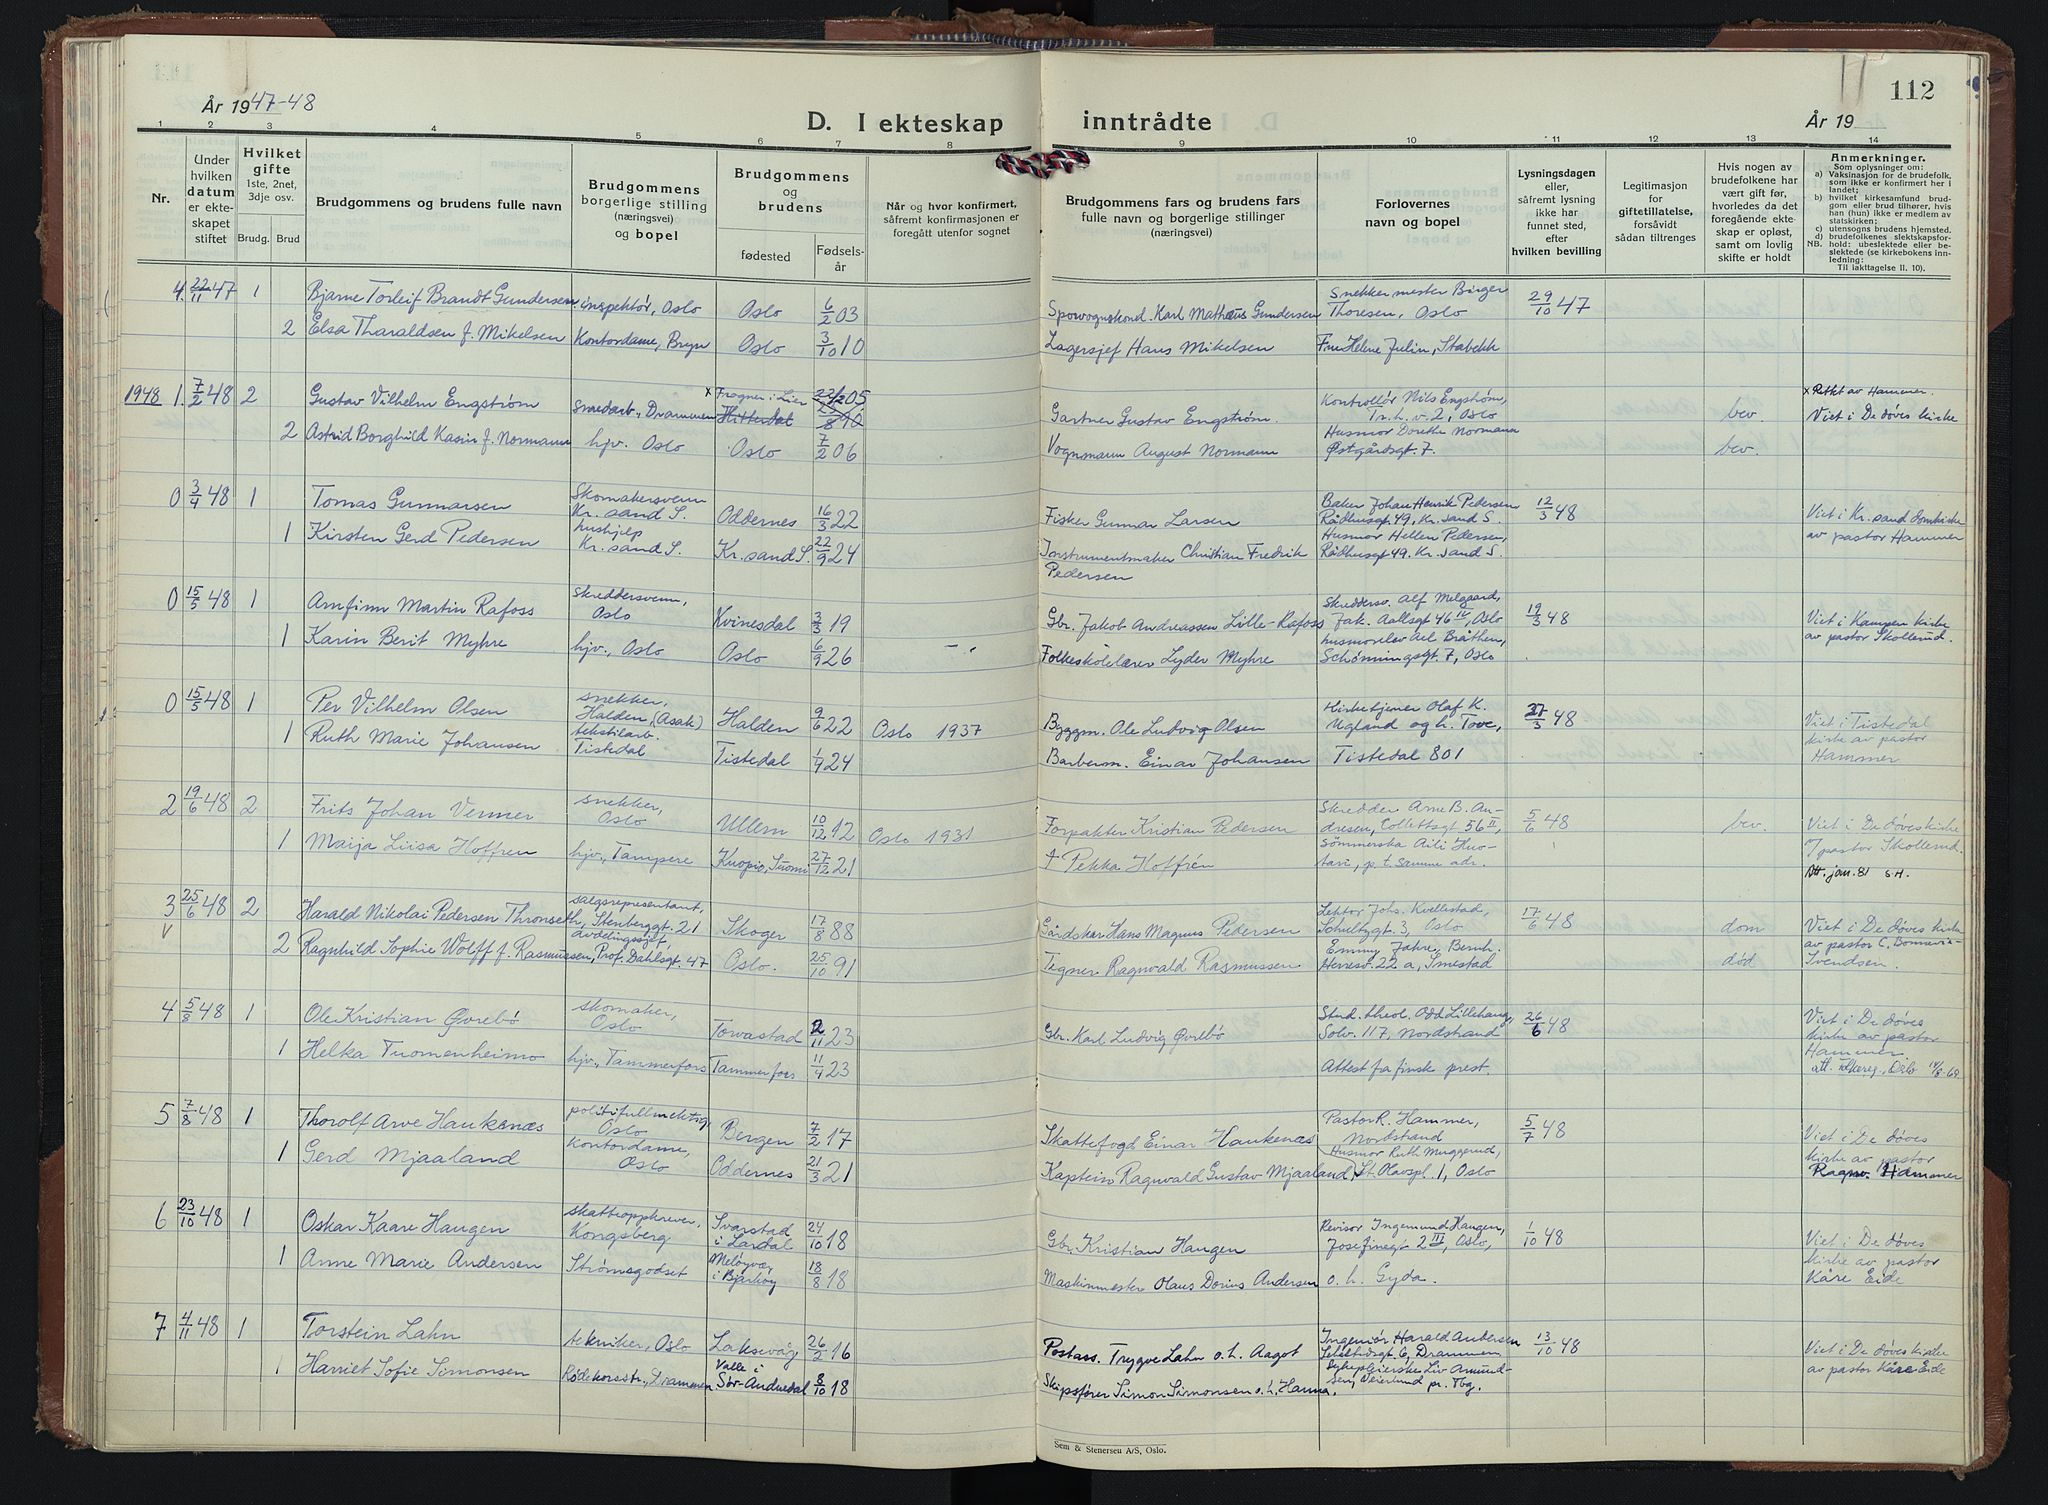 112
År 1947-48
D. I ekteskap inntrådte
År 19
1 2 3 4 5 6 7 8 9 10 11 12 13 14
Nr.
Under hvilken datum er ekteskapet stiftet
Hvilket gifte
1ste, 2net, 3dje osv.
Brudg. Brud
Brudgommens og brudens fulle navn
Brudgommens borgerlige stilling (næringsvei) og bopel
Brudgommens og brudens
fødested
Fødselsår
Når og hvor konfirmert, såfremt konfirmasjonen er foregått utenfor sognet
Brudgommens fars og brudens fars fulle navn og borgerlige stillinger (næringsvei)
Forlovernes navn og bopel
Lysningsdagen eller, såfremt lysning ikke har funnet sted, efter hvilken bevilling
Legitimasjon for giftetillatelse, forsåvidt sådan tiltrenges
Hvis nogen av brudefolkene har vært gift før, hvorledes da det foregående ekteskap er opløst, samt om lovlig skifte er holdt
Anmerkninger.
Som oplysninger om:
a) Vaksinasjon for de brudefolk, som ikke er konfirmert her i landet;
b) hvilket kirkesamfund brudgom eller brud tilhører, hvis han (hun) ikke er medlem av statskirken;
c) utensogns brudens hjemsted.
d) brudefolkenes slektskapsforhold: ubeslektede eller beslektede (se kirkebokens innledning:
NB.
Til iakttagelse II, 10).
4. 22/11 47 1 Bjarne Torleif Brandt Gundersen inspektør, Oslo Oslo 6/2 03 Sporvognskond. Karl Mathæus Gundersen Snekkermester Birger Thoresen, Oslo 29/10 47
2 Elsa Tharaldsen f. Mikelsen Kontordame, Bryn Oslo 3/10 10 Lagersjef Hans Mikelsen Fru Helene Julin, Stabekk
1948 1. 7/2 48 2 Gustav Vilhelm Engstrøm smedarb., Drammen x Frogner i Lier Hittedal 23/12 05 Gartner Gustav Engstrøm. Kontrollør Nils Engstrøm, Tr. h. v. 2, Oslo bev x Rettet av Hammer. Viet i De døves kirke
2 Astrid Borghild Kasin f. Normann hjv. Oslo Oslo 7/2 06 Vognmann August Normann Husmor Dorethe Normann Østgårdsgt. 7. bev.
0 3/4 48 1 Tomas Gunnarsen Skomakersvenn Kr. sand S. Oddernes 16/3 22 Fisker Gunnar Larsen Baker Johan Henrik Pedersen Rådhusgt 49, Kr. sand S. 12/3 48 Viet i Kr. sand domkirke av pastor Hammer
1 Kirsten Gerd Pedersen hushjelp Kr. sand S. Kr. sand S. 22/9 24 Instrumentmaker Christian Fredrik Pedersen Husmor Hellen Pedersen, Rådhusgt 49. Kr. sand S.
0 15/5 48 1 Arnfinn Martin Rafoss skreddersvenn, Oslo Kvinesdal 3/3 19 Gbr. Jakob Andreassen Lille-Rafoss Skreddersv. Alf Melgaard, Jak. Aallsgt 46 IV, Oslo 19/3 48 Viet i Kampen kirke av pastor Skollerud.
1 Karin Berit Myhre hjv., Oslo Oslo 6/9 26 Folkeskolelærer Lyder Myhre husmorelev Ael Bråthen, Schønningsgt. 7, Oslo
0 15/5 48 1 Per Vilhelm Olsen snekker, Halden, (Asak) Halden 9/6 22 Oslo 1937 Byggm. Ole Ludvig Olsen Kirketjener Olaf K. Ugland og h. Tove, 27/3 48 Viet i Tistedal kirke av pastor Hammer
1 Ruth Marie Johansen tekstilarb. Tistedal Tistedal 1/4 24 Barberm. Einar Johansen Tistedal 801
2 19/6 48 2 Frits Johan Venner snekker, Oslo Ullern 10/12 12 Oslo 1931 Forpakter Kristian Pedersen Skredder Arne B. Andresen, Collettsgt 56 II, 5/6 48 bev Viet i De døves kirke pastor Skollerud.
1 Maija Liisa Hoffren hjv., Tampere Kuopio, Suomi 27/12 21 Pekka Hoffrén Sömmerska Aili Huotari, p. t. samme adr. Att. jan. 81 S.H.
3 25/6 48 2 Harald Nikolai Pedersen Thronseth salgsrepresentant, Stenberggt. 21 Skoger 17/8 88 Gårdskar Hans Magnus Pedersen Lektor Johs. Kvellestad, Schultzgt. 3, Oslo 17/6 48 dom Viet i De døves kirke av pastor C. Bonnevie-Svendsen.
2 Ragnhild Sophie Wolff f. Rasmussen avdelingssjef, Prof. Dahlsgt. 47 Oslo. 25/10 91 Tegner Ragnvald Rasmussen Emmy Jahre, Bernh. Herresv. 22 a, Smestad død
4 5/8 48 1 Ole Kristian Øvrebø skomaker, Oslo Torvastad 2/11 23 Gbr. Karl Ludvig Øvrebø Stud. theol. Odd Lillehaug, Solv. 117, Nordstrand 26/6 48 Viet i De døves kirke av pastor Hammer
1 Helka Tuomenheimo hjv., Tammerfors Tammerfors 11/4 23 Attest fra finsk prest. att. Folkereg., Oslo
5 7/8 48 1 Thorolf Arve Haukenæs politifullmektig, Oslo Bergen 7/2 17 Skattefogd Einar Haukenæs Pastor R. Hammer, Nordstrand 5/7 48 Viet i De døves kirke av pastor Ragnv. Hammer
1 Gerd Mjaaland kontordame, Oslo Oddernes 21/3 21 Kaptein Ragnvald Gustav Mjaaland Husmor Ruth Muggerud, St. Olavspl. 1, Oslo
6 23/10 48 1 Oskar Kaare Haugen skatteoppkrever, Kongsberg Svarstad i Lardal 24/10 18 Gbr. Kristian Haugen Revisor Ingemund Haugen, Josefinegt 2 III, Oslo, 1/10 48 Viet i De døves kirke av pastor Kåre Eide
1 Anne Marie Andersen Strømsgodset Meløyvær i Bjarkøy 18/8 18 Maskinmester Olaus Dorius Andersen o. h. Gyda.
7 4/11 48 1 Torstein Lahn tekniker, Oslo Laksevåg 26/2 16 Postass. Trygve Lahn o. h. Aagot Ingeniør Harald Andersen 6, Drammen 13/10 48 Viet i De døves kirke av pastor Kåre Eide
1 Harriet Sofie Simonsen Rødekorsstr., Drammen Valle i Sør-Audnedal 8/10 18 Skipsfører Simon Simonsen o. h. Hanna. Sykepleierske Liv Amundsen, Veierlund pr. Tbg.
Sem & Stenersen A/S, Oslo.